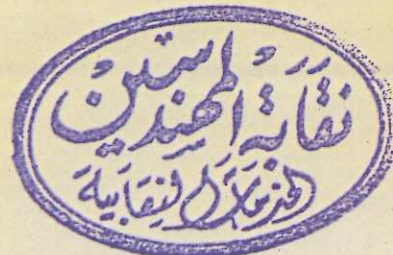 نقابة المهندسين
الخدمات النقابية